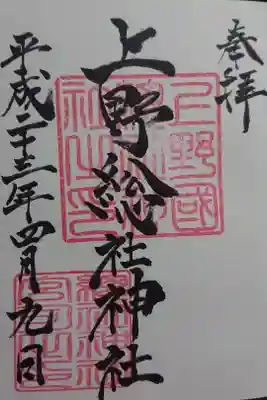 奉拝
上野総社神社
平成二十三年四月九日
上野國